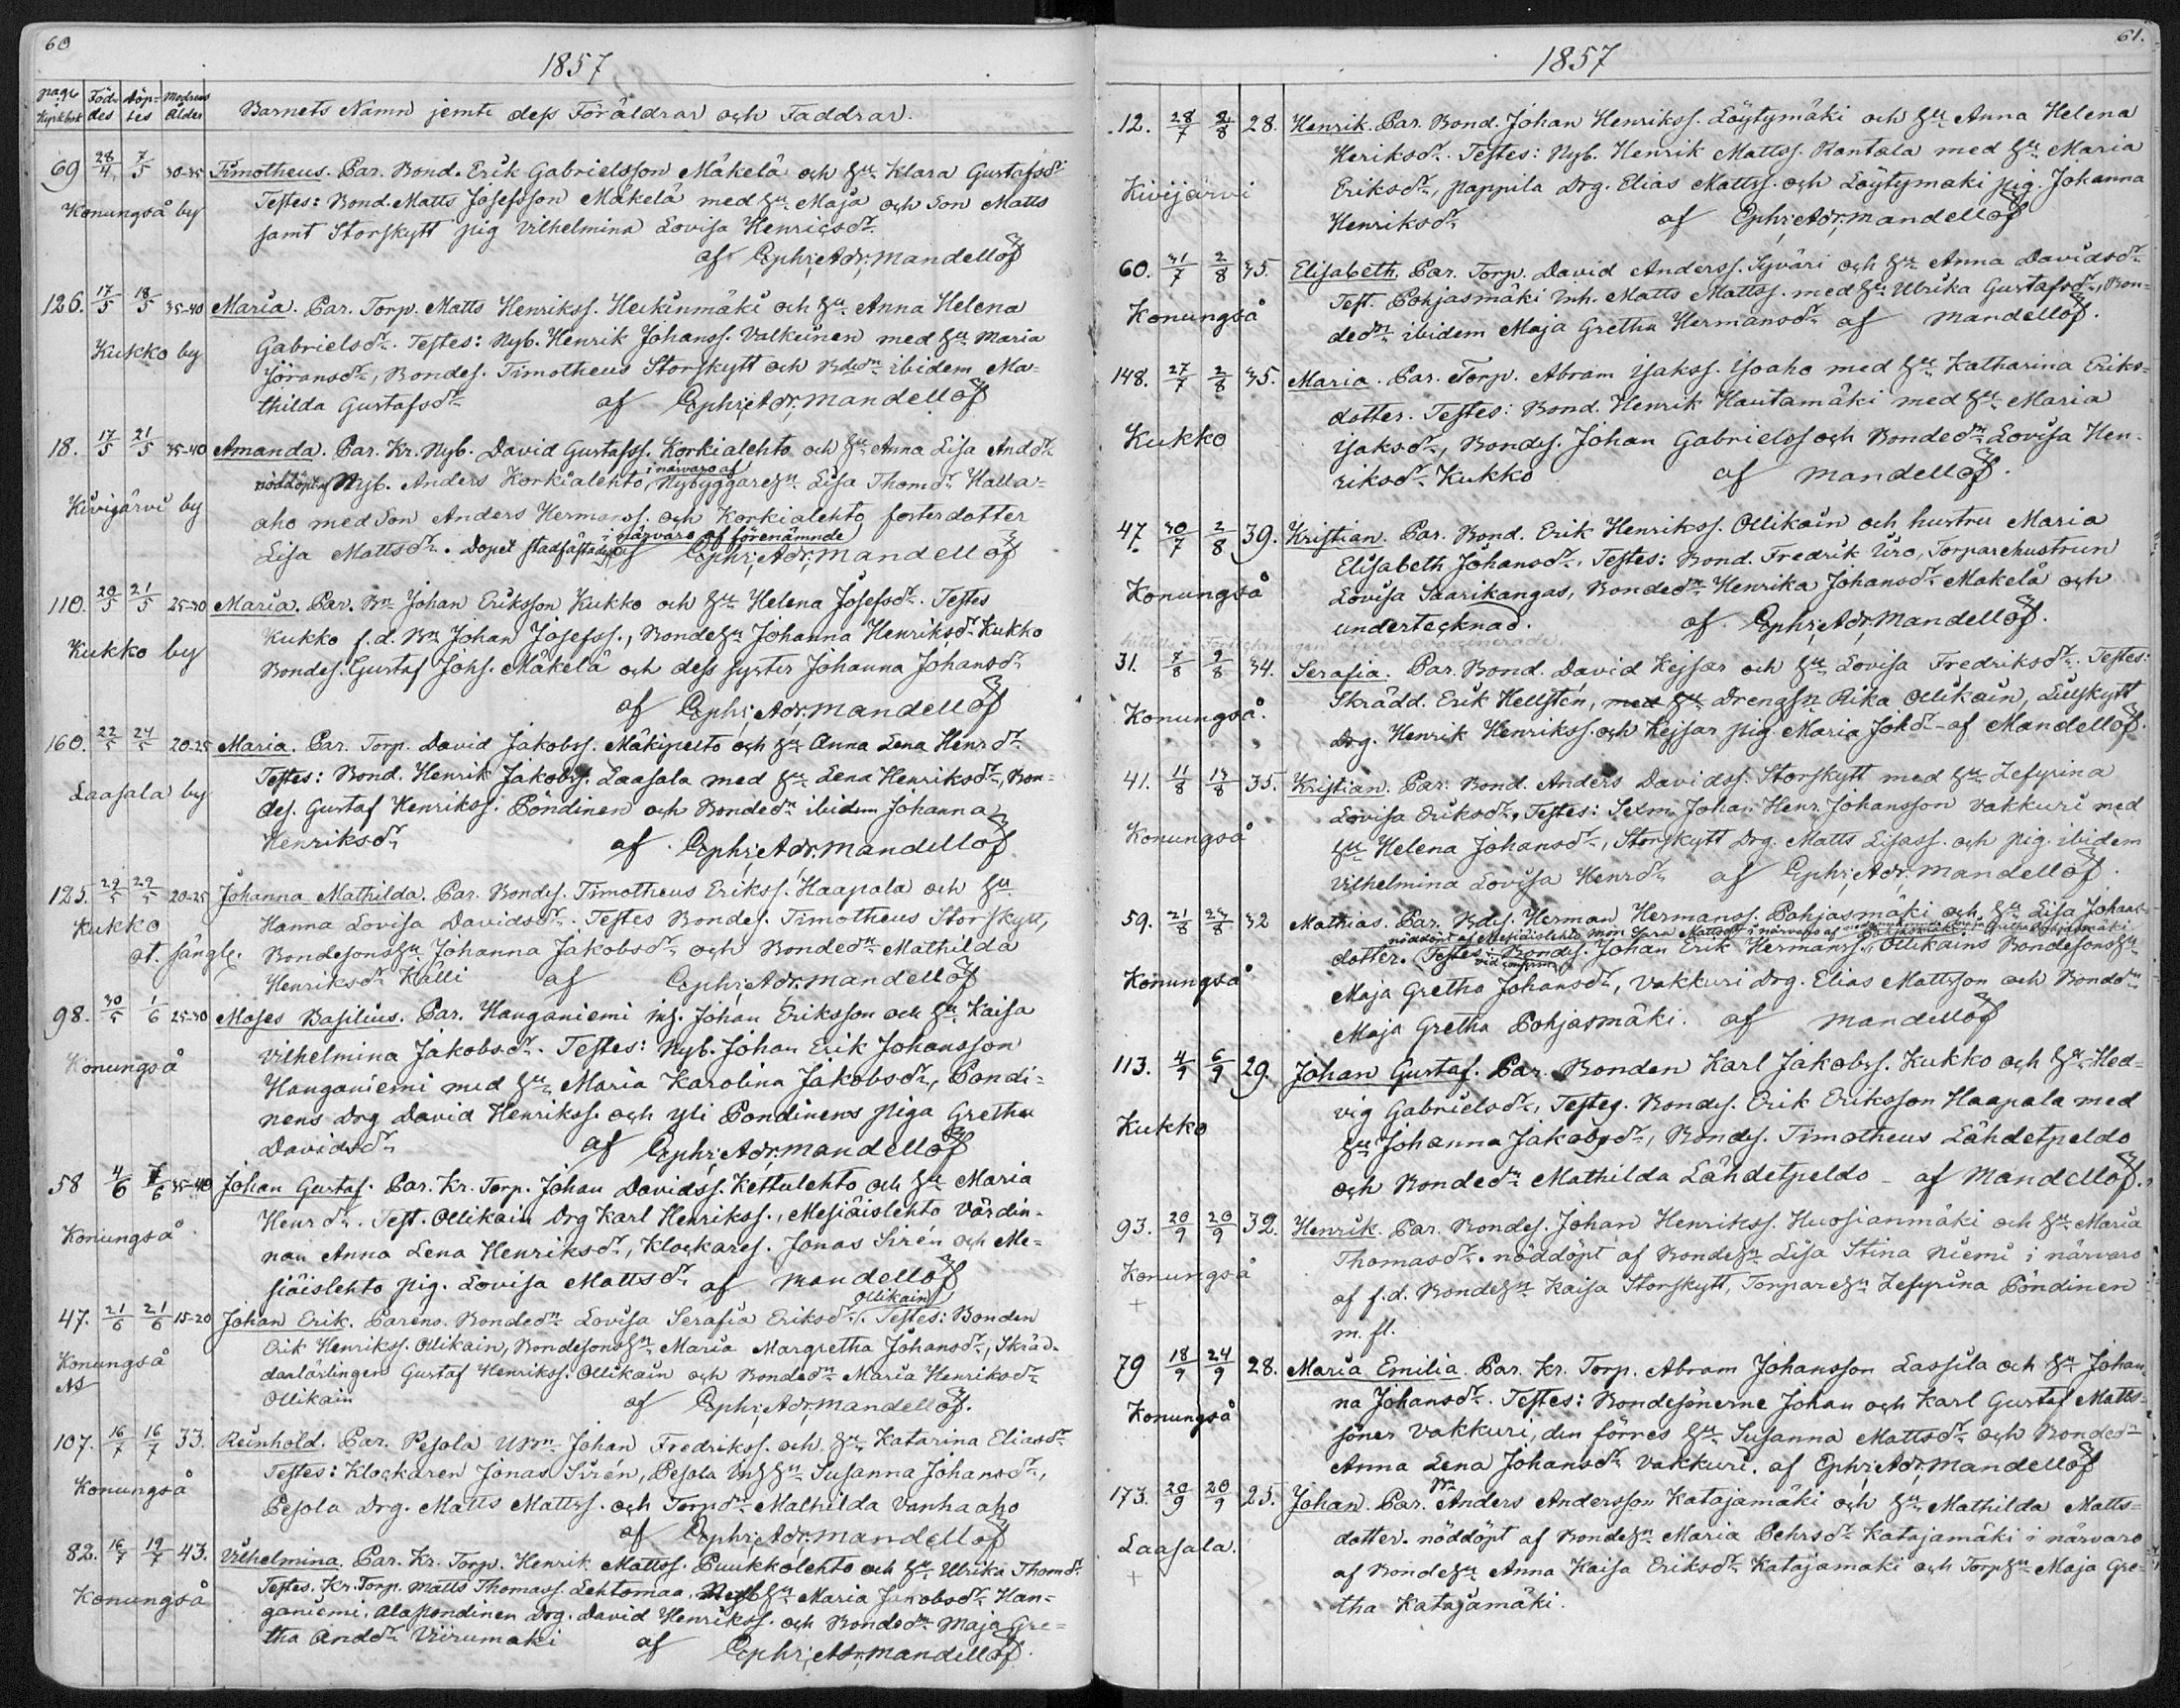 60
1857
page Kyrkbok
Föd-des
döp-tes
Modrens ålder
Barnets Namn jemte dess Föräldrar och Faddrar.
69 28/4 7/5 30-35 Timotheus. Par. Bond. Erik Gabrielsson Mäkelä och Hu Klara Gustafsdr
Konungså by Testes: Bond. Matts Josefsson Mäkelä med Hu Maja och Son Matts
samt Storskytt pig Vilhelmina Lovisa Henricsdr
af Ephr. Adr. Mandellöf
126. 17/5 18/5 35-40 Maria. Par. Torp. Matts Henrikss. Heikinmäki och Hu Anna Helena
Kukko by Gabrielsdr. Testes: Nyb. Henrik Johanss. Valkeinen med Hu Maria
Jöransdr, Bondes. Timotheus Storskytt och Bdedn ibidem Ma-
thilda Gustafsdr af Ephr. Adr. Mandellöf
18. 17/5 21/5 35-40 Amanda. Par. Kr. Nyb. David Gustafss. Korkialehto och Hu Anna Lisa Anddr
nöddöpt af Nyb. Anders Korkialehto, i närvaro af Nybyggarehn Lisa Thomdr Halla-
Kivijärvi by aho med Son Anders Hermanss. och Korkialehto fosterdotter
Lisa Mattsdr. Dopet stadfästades i närvaro af förenämnde af Ephr. Adr. Mandellöf
110. 20/5 21/5 25-30 Maria. Par. Bn Johan Eriksson Kukko och Hu Helena Josefsdr. Testes
Kukko by Kukko f.d. Bn Johan Josefss., Bondehn Johanna Henriksdr Kukko
Bondes. Gustaf Johs. Mäkelä och dess syster Johanna Johansdr
af Ephr. Adr. Mandellöf
160. 22/5 24/5 20-25 Maria. Par. Torp. David Jakobss. Mäkipelto och Hu Anna Lena Henrdr
Laasala by Testes: Bond. Henrik Jakobss. Laasala med Hu Lena Henriksdr, Bon-
des. Gustaf Henrikss. Pöndinen och Bondedn ibidem Johanna
Henriksdr af Ephr. Adr. Mandellöf
125. 29/5 29/5 20-25 Johanna Mathilda. Par. Bondes. Timotheus Erikss. Haapala och Hu
Kukko Hanna Lovisa Davidsdr. Testes Bondes. Timotheus Storskytt,
Bondesonshn Johanna Jakobsdr och Bondedn Mathilda
Henriksdr Kalli af Ephr. Adr. Mandellöf
98. 30/5 1/6 25-30 Moses Basilius. Par. Hanganiemi inh. Johan Eriksson och Hu Kaisa
Konungså Vilhelmina Jakobsdr. Testes: Nyb. Johan Erik Johansson
Hanganiemi med Hu Maria Karolina Jakobsdr, Pondi-
nens Drg David Henrikss. och Yli Pondinens piga Gretha
Davidsdr af Ephr. Adr. Mandellöf
58 4/6 7/6 35-40 Johan Gustaf. Par. Kr. Torp. Johan Davidss. Kettulehto och Hu Maria
Konungså Henrdr. Test. Ollikain Drg Karl Henrikss., Mesiäislehto Värdin-
nan Anna Lena Henriksdr, Klockares. Jonas Sirén och Me-
siäislehto pig. Lovisa Mattsdr af Mandellöf
47. 21/6 21/6 15-20 Johan Erik. Parens. Bondedn Lovisa Serafia Eriksdr Ollikain. Testes: Bonden
Konungså Erik Henrikss. Ollikain, Bondesonshn Maria Margretha Johansdr, Skräd-
darlärlingen Gustaf Henrikss. Ollikain och Bondedn Maria Henriksdr
Ollikain af Ephr. Adr. Mandellöf.
107. 16/7 16/7 33. Reinhold. Par. Pesola UBn Johan Fredrikss. och Hu Katarina Eliasdr
Konungså Testes: Klockaren Jonas Sirén, Pesola Inhhn Susanna Johansdr,
Pesola Drg. Matts Mattss. och Torpdn Mathilda Vanhaaho
af Ephr. Adr. Mandellöf
82. 16/7 19/7 43. Vilhelmina. Par. Kr. Torp. Henrik Mattss. Puukkolehto och Hu Ulrika Thomdr
Konungså Testes. Kr. Torp. Matts Thomass. Lehtomaa, Nybhn Maria Jakobsdr Han-
ganiemi, Alapondinen Drg. David Henrikss. och Bondedn Maja Gre-
tha Anddr Viirumäki af Ephr. Adr. Mandellöf.
61.
1857
12. 28/7 2/8 28. Henrik. Par. Bond. Johan Henrikss. Löytymäki och Hu Anna Helena
Heriksdr. Testes: Nyb. Henrik Mattss. Rantala med Hu Maria
Kivijärvi Eriksdr, pappila Drg. Elias Mattss. och Löytymäki pig. Johanna
Henriksdr af Ephr. Adr. Mandellöf
60. 31/7 2/8 35. Elisabeth. Par. Torp. David Anderss. Syväri och Hu Anna Davidsdr
Konungså Test. Pohjasmäki Inh. Matts Mattss. med Hu Ulrika Gustafsdr, Bon-
dedn ibidem Maja Gretha Hermansdr af Mandellöf.
148. 27/7 2/8 35. Maria. Par. Torp. Abram Isakss. Isoaho med Hu Katharina Eriks-
Kukko dotter. Testes: Bond. Henrik Hautamäki med Hu Maria
Isaksdr, Bondes. Johan Gabrielss och Bondedn Lovisa Hen-
riksdr Kukko af Mandellöf.
47. 30/7 2/8 39. Kristian. Par. Bond. Erik Henrikss. Ollikain och hustru Maria
Elisabeth Johansdr. Testes: Bond. Fredrik Uro, Torparehustrun
Konungså Lovisa Saarikangas, Bondedn Henrika Johansdr Makelä och
undertecknad. af Ephr. Adr. Mandellöf.
31. 7/8 9/8 34. Serafia. Par. Bond. David Kejsar och Hu Lovisa Fredriksdr. Testes:
Konungså. Skrädd. Erik Hellstén, med Hu Drengsn Rika Ollikain, Lillskytt
Drg. Henrik Henrikss. och Kejsar pig. Maria Jokdr - af Mandellöf.
41. 11/8 13/8 35. Kristian. Par. Bond. Anders Davidss. Storskytt med Hu Zefyrina
Konungså Lovisa Eriksdr, Testes: Sexm. Johan Henr. Johansson Vakkuri med
Hu Helena Johansdr, Storskytt Drg. Matts Lisass. och pig. ibidem
Vilhelmina Lovisa Henrdr af Ephr. Adr. Mandellöf.
59. 21/8 23/8 32 Mathias. Par. Bds. Herman Hermanss. Pohjasmäki och Hu Lisa Johans-
dotter. Testes: Bondes. Johan Erik Hermanss., Ollikains Bondesonshn
Konungså Maja Gretha Johansdr, Vakkuri Drg. Elias Mattsson och Bondedn
Maja Gretha Pohjasmäki. af Mandellöf
113. 4/9 6/9 29. Johan Gustaf. Par. Bonden Karl Jakobss. Kukko och Hu Hed-
Kukko vig Gabrielsdr, Testes. Bondes. Erik Eriksson Haapala med
Hu Johanna Jakobsdr, Bondes. Timotheus Lähdetpeldo
och Bondedn Mathilda Lähdetpeldo - af Mandellöf.
93. 20/9 20/9 32. Henrik. Par. Bondes. Johan Henrikss. Huosianmäki och Hu Maria
Konungså Thomasdr. nöddöpt af Bondehn Lisa Stina Niemi i närvaro
+ af f.d. Bondehn Kaisa Storskytt, Torparehn Zefyrina Pöndinen
m. fl.
79 18/9 24/9 28. Maria Emilia. Par. Kr. Torp. Abram Johansson Lassila och Hu Johan
Konungså na Johansdr. Testes: Bondesönerne Johan och Karl Gustaf Matts-
söner Vakkuri, den förres Hu Susanna Mattsdr och Bondedn
Anna Lena Johansdr Vakkuri. af Ephr. Adr. Mandellöf
173. 20/9 20/9 25. Johan. Par. Bn Anders Andersson Katajamäki och Hu Mathilda Matts-
Laasala. dotter. nöddöpt af Bondehn Maria Pehrsdr Katajamäki i närvaro
+ af Bondehn Anna Kaisa Eriksdr Katajamäki och Torphn Maja Gre-
tha Katajamäki.